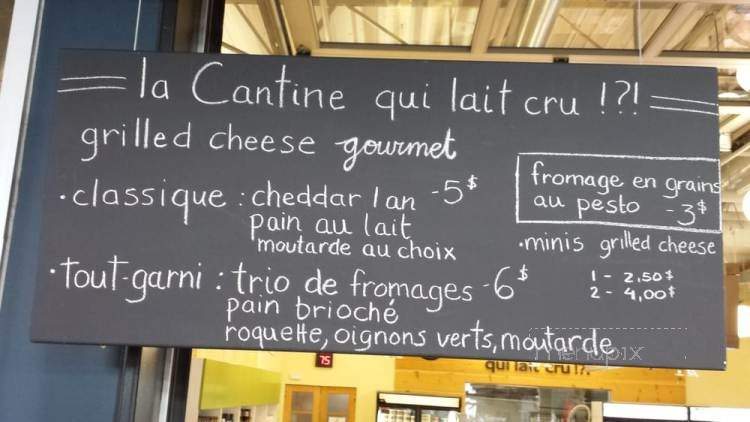 la Cantine qui lait cru !?!
grilled cheese gourmet
• classique : cheddar 1 an - 5$
pain au lait
moutarde au choix
• tout-garni : trio de fromages - 6$
pain brioché
roquette, oignons verts, moutarde
fromage en grains
au pesto - 3$
• minis grilled cheese
1 - 2,50$
2 - 4,00$
Menupix
75
qui lait cru !?!